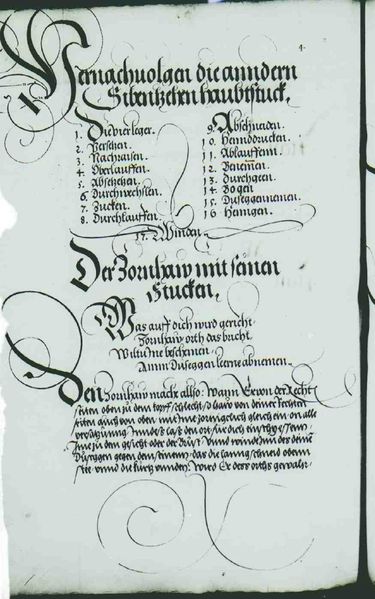 4.
Hernachuolgen die anndern
Sibentzehen haubtstuck.
1. Die vier leger.
2. Versetzen.
3. Nachraisen.
4. Überlauffen.
5. Absetzen.
6. Durchwechslen.
7. Zucken.
8. Durchlauffen.
9. Abschneiden.
10 Henndtrucken.
11 Ablauffenn.
12 Benemen.
13 Durchgeen.
14 Bogen
15 Duseggennemen.
16 Hemigen.
17. Winden.
Der Zornhaw mit seinen
Stucken.
Was auff dich wird gericht
Zornhaw orth das bricht.
Wiltu Ine beschemen.
Amm Duseggen lerne abnemen.
Den Zornhaw mache allso: Wann Er von der Recht
seiten oben zu dem kopff schlecht, so haw von deiner rechten
seiten auch von oben mit Ime zorniglich gleich ein on alle
versatzung
Ime zu dem gesicht oder der Brust Unnd
Duseggen gegen dem seinem das die lanng schneid obenn
stee unnd die kurtz unnden, Wird Er dess orths gewahr